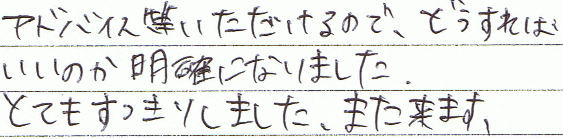 アドバイス等いただけるので、どうすれば
いいのか明確になりました.
とてもすっきりしました、また来ます、